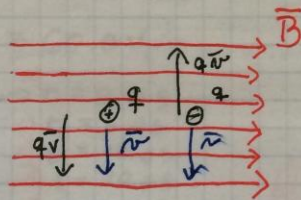 B̅
qv̅
q q
⊕ ⊖
qv̅ v̅ v̅